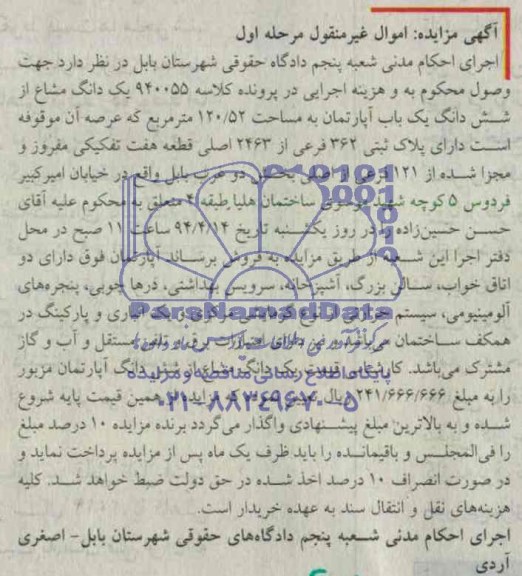 آگهی مزایده: اموال غیرمنقول مرحله اول
اجرای احکام مدنی شعبه پنجم دادگاه حقوقی شهرستان بابل در نظر دارد جهت
وصول محکوم به و هزینه اجرایی در پرونده کلاسه ۹۴۰۰۵۵ یک دانگ مشاع از
شش دانگ یک باب آپارتمان به مساحت ۱۲۰/۵۲ مترمربع که عرصه آن موقوفه
است دارای پلاک ثبتی ۳۶۲ فرعی از ۲۴۶۳ اصلی قطعه هفت تفکیکی مفروز و
مجزا شده از ۱۲۱ فرعی از اصلی بخش دو غرب بابل واقع در خیابان امیرکبیر
فردوس ۵ کوچه شهید موسوی ساختمان هلیا طبقه ۴ متعلق به محکوم علیه آقای
حسن حسین‌زاده را در روز یکشنبه تاریخ ۹۴/۴/۱۴ ساعت ۱۱ صبح در محل
دفتر اجرا این شعبه از طریق مزایده به فروش برساند آپارتمان فوق دارای دو
اتاق خواب، سالن بزرگ، آشپزخانه، سرویس بهداشتی، درها چوبی، پنجره‌های
آلومینیومی، سیستم انباری و پارکینگ در
ParsNamadData
همکف ساختمان می‌باشد دارای امتیازات برق و تلفن مستقل و آب و گاز
مشترک می‌باشد. قیمت یک دانگ مشاع از شش دانگ آپارتمان مزبور
پایگاه اطلاع رسانی مناقصه و مزایده
را به مبلغ ۲۴۱/۶۶۶/۶۶۶ ریال که مزایده از همین قیمت پایه شروع
۰۲۱-۸۸۳۴۹۶۷۰-۵
شده و به بالاترین مبلغ پیشنهادی واگذار می‌گردد برنده مزایده ۱۰ درصد مبلغ
را فی‌المجلس و باقیمانده را باید ظرف یک ماه پس از مزایده پرداخت نماید و
در صورت انصراف ۱۰ درصد اخذ شده در حق دولت ضبط خواهد شد. کلیه
هزینه‌های نقل و انتقال سند به عهده خریدار است.
اجرای احکام مدنی شعبه پنجم دادگاه‌های حقوقی شهرستان بابل- اصغری
آردی